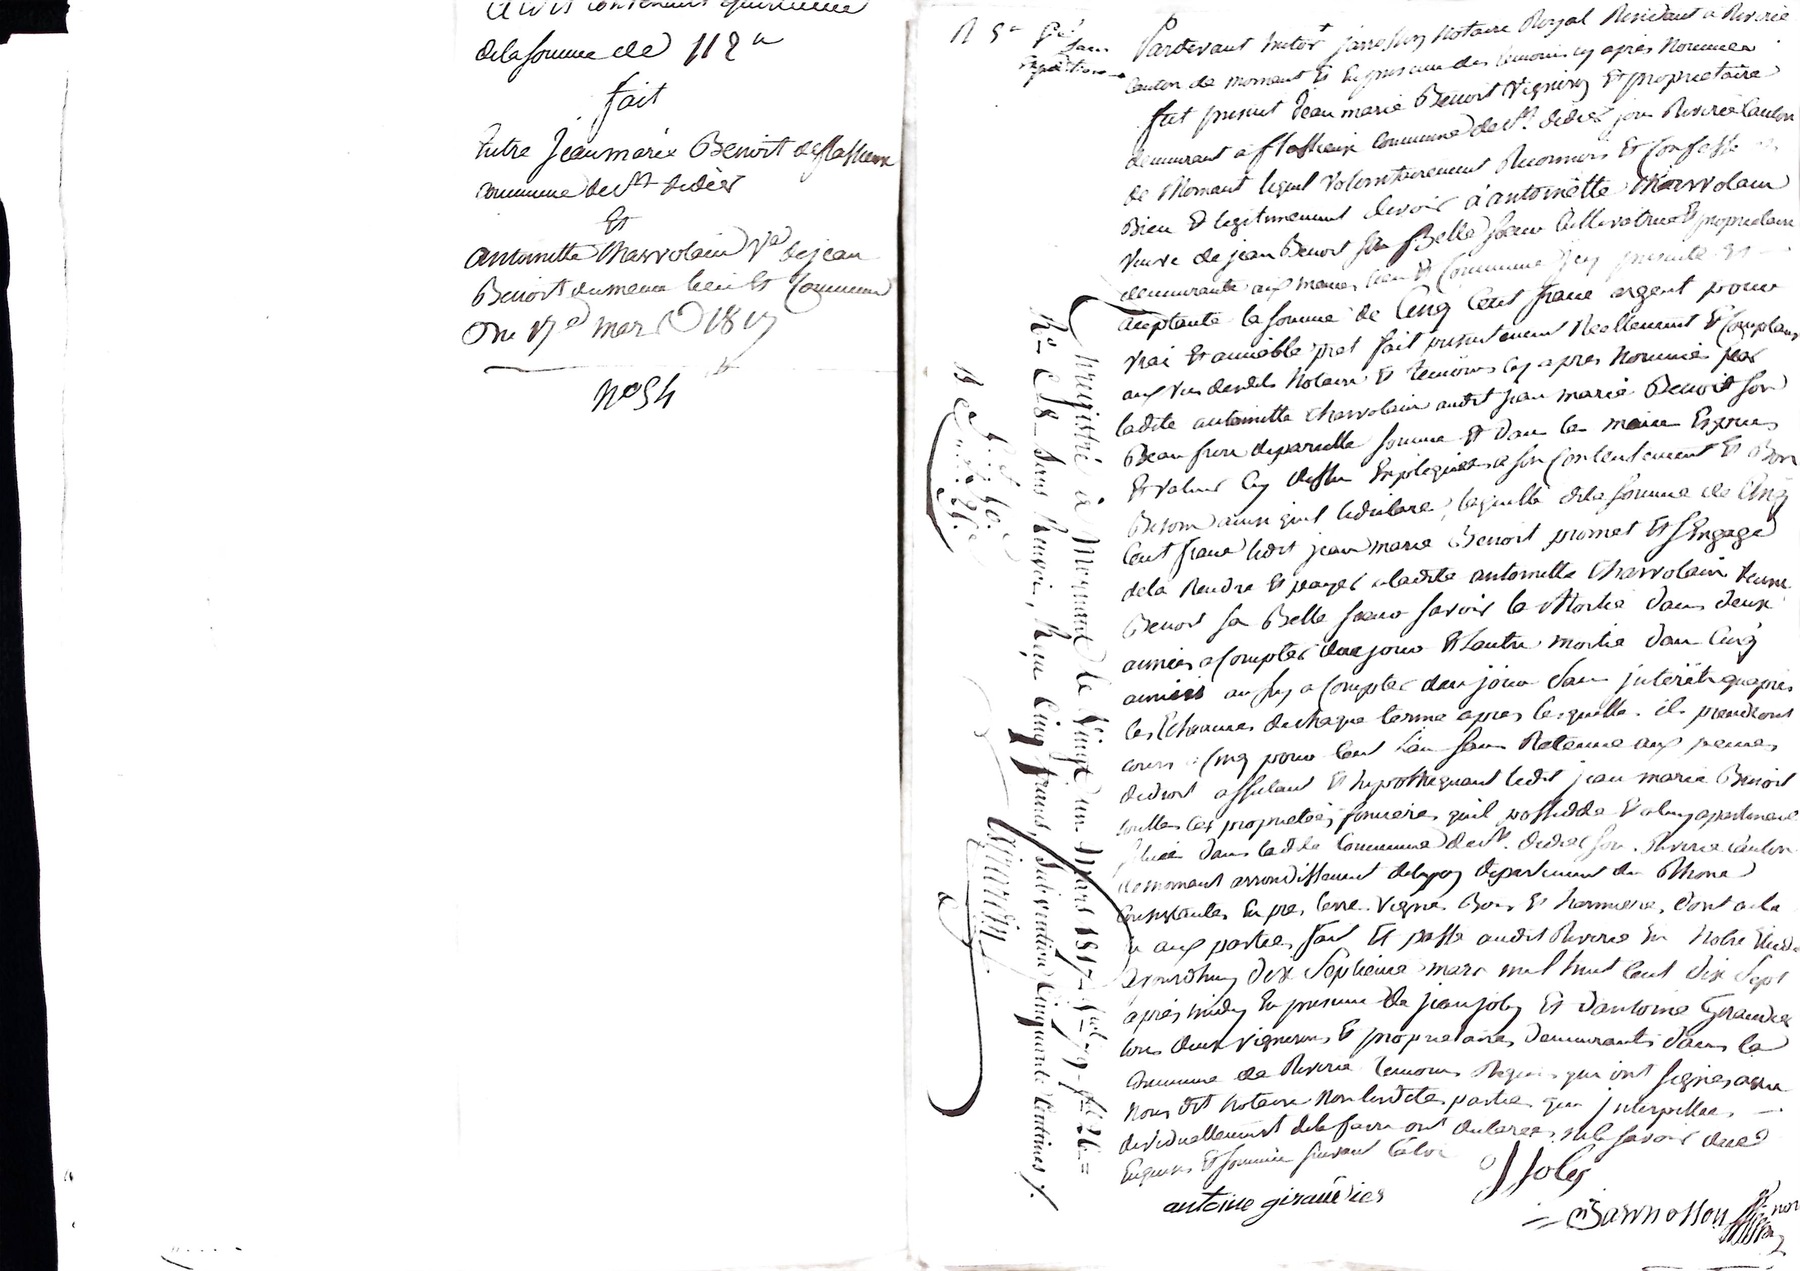 delasomme de 112 tt
fait
Entre Jean marie Benoit deflassieux
commune de St didier
Et
antoinette Charvolain Ve de jean
Benoit dumeme lieu et Commune
Du 17e mars 1817
No 54
R 5 tt
sans
Expedition
Pardevant notre notaire Royal Residant a Riverie
Canton de mornant Et En presence des temoins cy après Nommés
fut present Jean marie Benoit vigneron Et proprietaire
demeurant a flassieux commune de St didier sous Riverie Canton
de Mornant lequel volontairement Reconnois Et Confesse
Bien Et legitimement devoir à antoinette Charvolain
veuve de jean Benoit sa Belle soeur Cultivatrice Et proprietaire
demeurante aux memes lieu Et Commune Icy presente Et
aceptante la somme de Cinq Cent franc argent pour
vrai Et amiable pret fait presentement Reellement Et Comptant
aux vus desdits Notaire Et temoins Cy apres Nommés par
ladite antoinette Charvolain audit jean marie Benoit son
Beau frere de pareille somme Et dans les memes Especes
Et valeur Cy dessus Expliquées a son Contentement Et Bon
Besoin ainsi quil ledeclare, laquelle dite somme de Cinq
Cent franc ledit jean marie Benoit promet Et sEngage
dela Rendre Et payer aladite antoinette Charvolain veuve
Benoit sa Belle soeur savoir la Moitié dans deux
années a Compter dece jour Et Lautre moitié dans Cinq
années aussy a Compter dece jour sans interêts quapres
les Echeances dechaque terme apres lesquelles ils prendront
cours a Cinq pour Cent l'an sans Retenue aux peines
dedroit affectant Et hypothequant ledit jean marie Benoit
toutes ces proprietées foncieres quil possedde Et a luy apartenant
situées dans ladite Commune de St didier sous Riverie Canton
de mornant arrondissement delyon departement du Rhone
Consistantes En pres, terre, vigne, Bois Et hermiere, dont acte
aux parties fait Et passé audit Riverie En Notre Etude
aujourdhuy dix Septieme mars mil huit Cent dix Sept
après midy En presence de jean joly Et dantoine Giraudier
tous deux vignerons Et proprietaires demeurants dans la
Commune de Riverie temoins Requis qui ont signés avec
Nous dit Notaire Non lesdites parties qui Interpellées
dividuellement dele faire ont declarées nele savoir dece
Enquises Et sommées suivant la loi
J Joly
antoine giraudier
Enregistré à Mornant le Vingt un Mars 1817
Sans Renvoi, Reçu Cinq francs, Subvention Cinquante Centimes